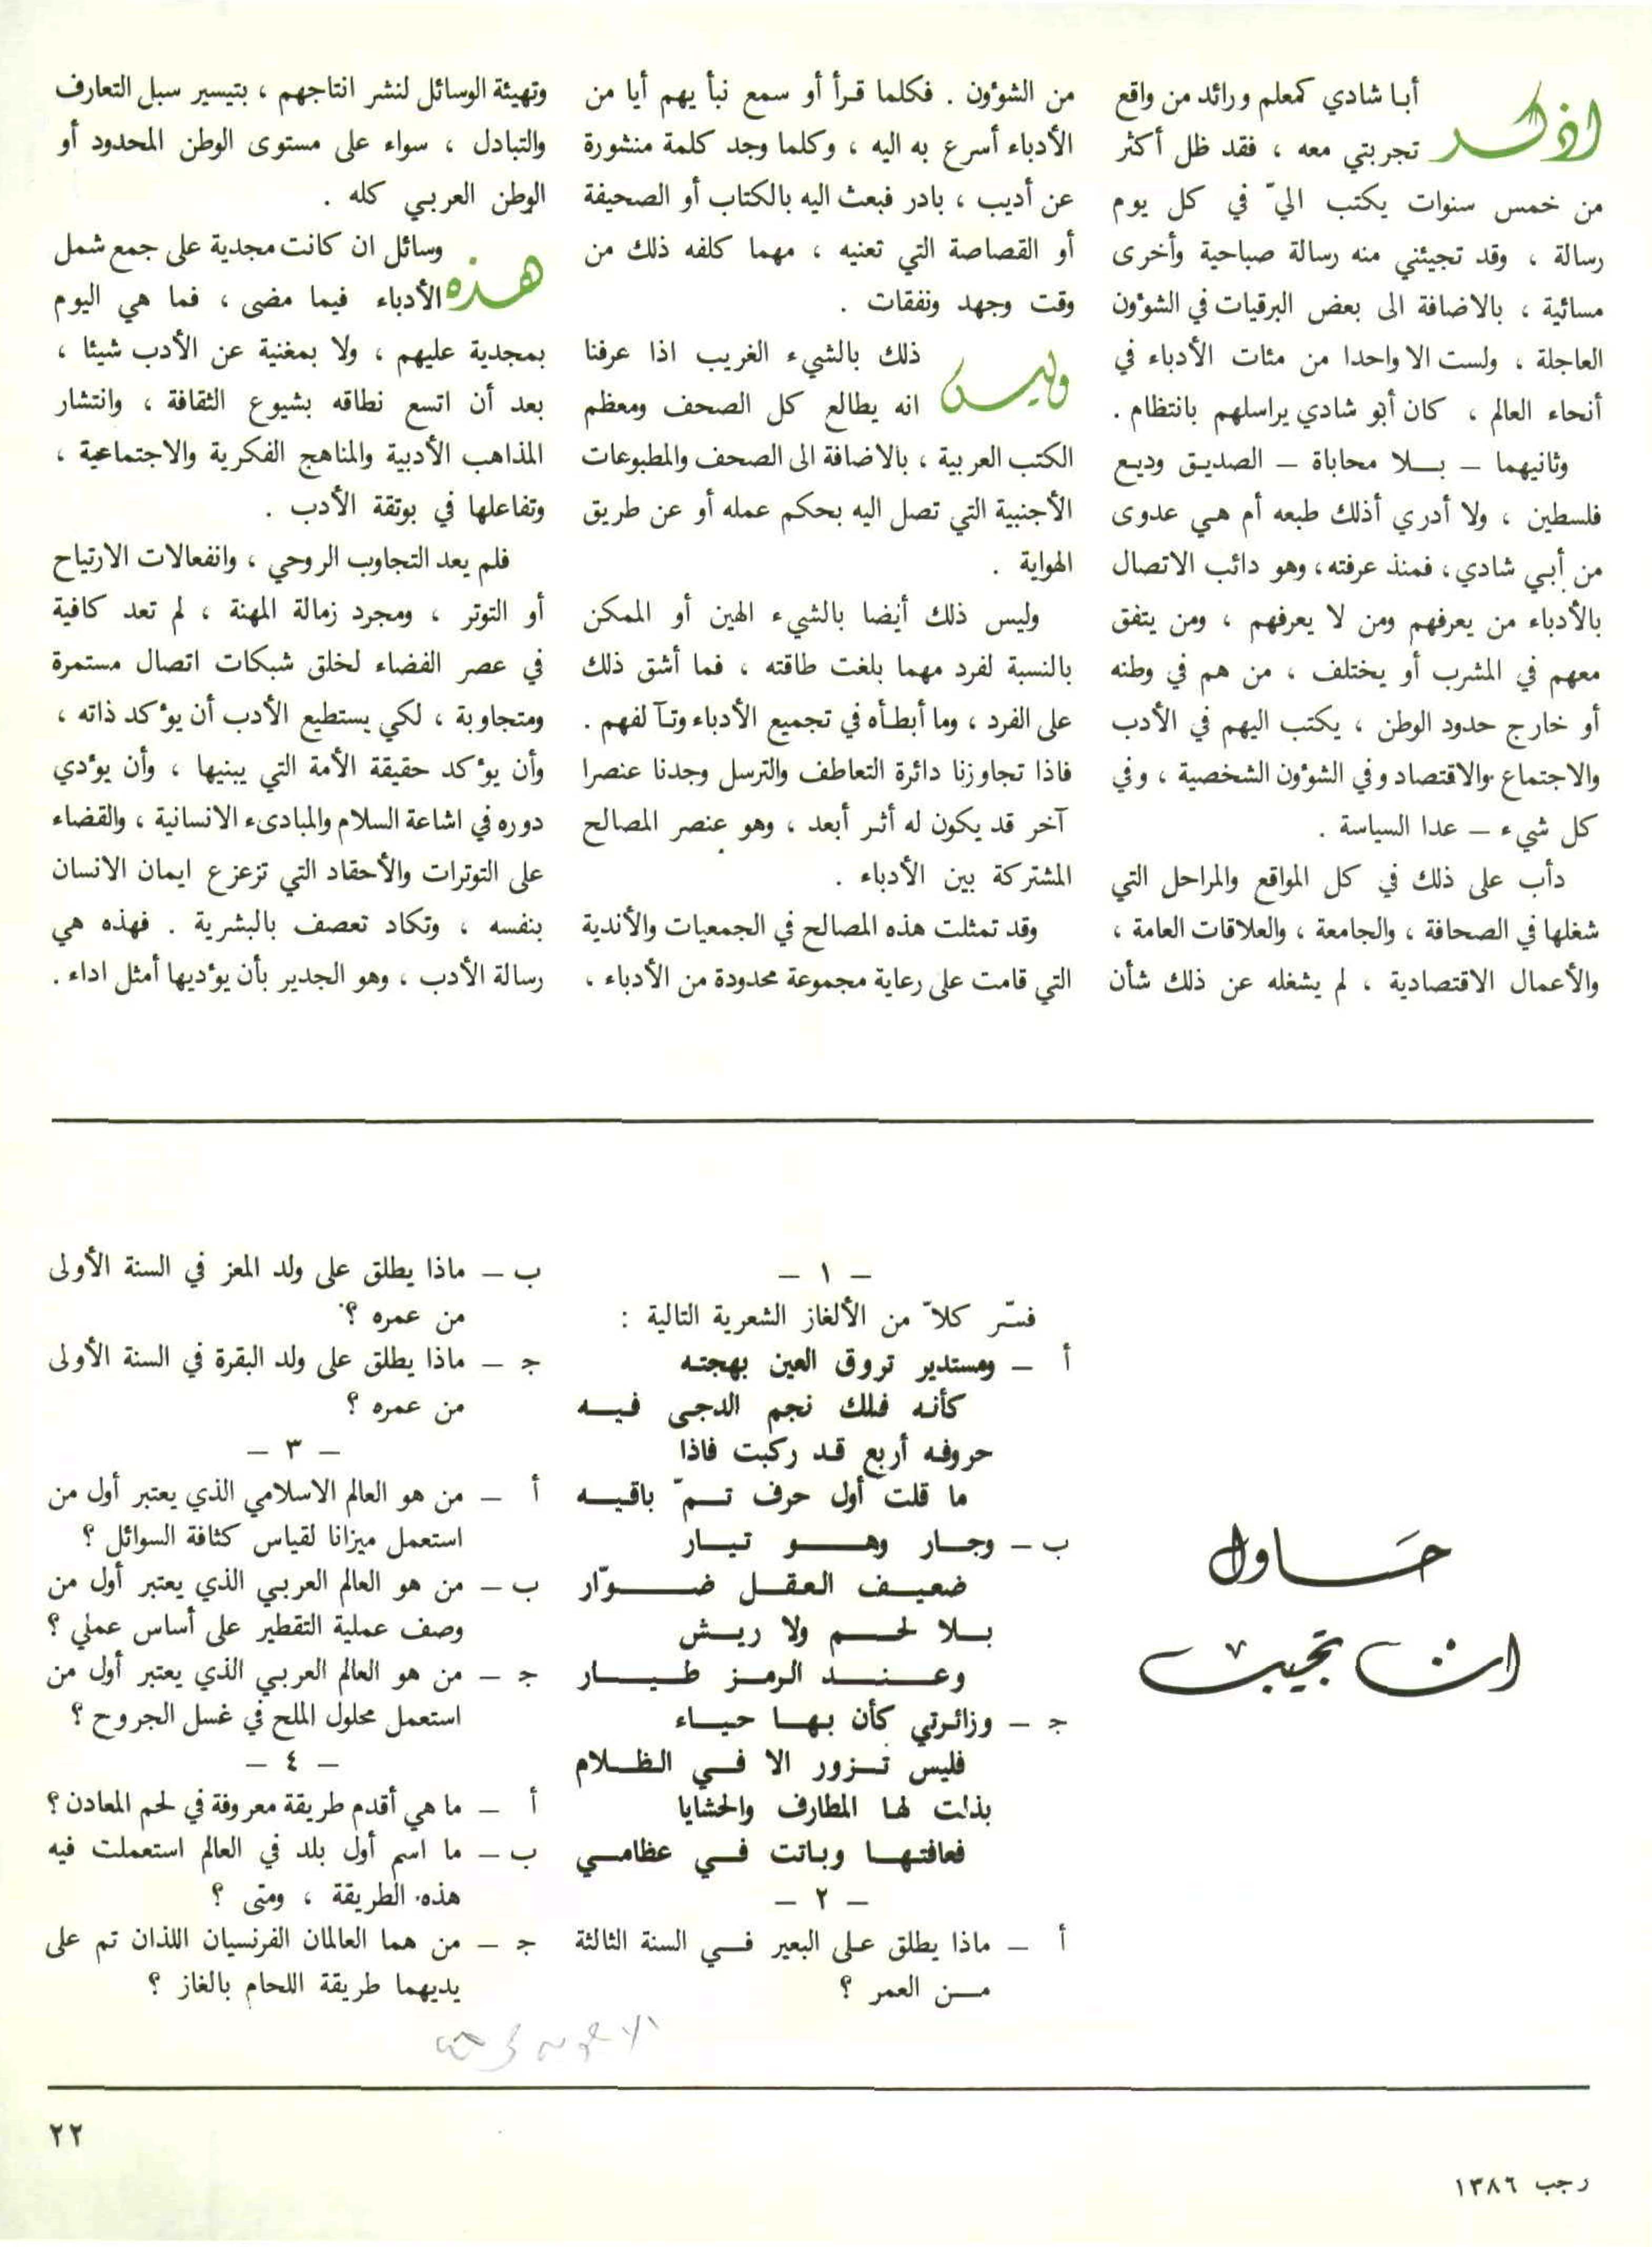 اذكر أبا شادي كمعلم ورائد من واقع
تجربتي معه ، فقد ظل أكثر
من خمس سنوات يكتب اليّ في كل يوم
رسالة ، وقد تجيئني منه رسالة صباحية وأخرى
مسائية ، بالاضافة الى بعض البرقيات في الشؤون
العاجلة ، ولست الا واحدا من مئات الأدباء في
أنحاء العالم ، كان أبو شادي يراسلهم بانتظام .
وثانيهما – بلا محاباة – الصديق وديع
فلسطين ، ولا أدري أذلك طبعه أم هي عدوى
من أبي شادي ، فمنذ عرفته ، وهو دائب الاتصال
بالأدباء من يعرفهم ومن لا يعرفهم ، ومن يتفق
معهم في المشرب أو يختلف ، من هم في وطنه
أو خارج حدود الوطن ، يكتب اليهم في الأدب
والاجتماع والاقتصاد وفي الشؤون الشخصية ، وفي
كل شيء – عدا السياسة .
دأب على ذلك في كل المواقع والمراحل التي
شغلها في الصحافة ، والجامعة ، والعلاقات العامة ،
والأعمال الاقتصادية ، لم يشغله عن ذلك شأن
من الشؤون . فكلما قرأ أو سمع نبأ يهم أيا من
الأدباء أسرع به اليه ، وكلما وجد كلمة منشورة
عن أديب ، بادر فبعث اليه بالكتاب أو الصحيفة
أو القصاصة التي تعنيه ، مهما كلفه ذلك من
وقت وجهد ونفقات .
وليس ذلك بالشيء الغريب اذا عرفنا
انه يطالع كل الصحف ومعظم
الكتب العربية ، بالاضافة الى الصحف والمطبوعات
الأجنبية التي تصل اليه بحكم عمله أو عن طريق
الهواية .
وليس ذلك أيضا بالشيء الهين أو الممكن
بالنسبة لفرد مهما بلغت طاقته ، فما أشق ذلك
على الفرد ، وما أبطأه في تجميع الأدباء وتآلفهم .
فاذا تجاوزنا دائرة التعاطف والترسل وجدنا عنصرا
آخر قد يكون له أثر أبعد ، وهو عنصر المصالح
المشتركة بين الأدباء .
وقد تمثلت هذه المصالح في الجمعيات والأندية
التي قامت على رعاية مجموعة محدودة من الأدباء ،
وتهيئة الوسائل لنشر انتاجهم ، بتيسير سبل التعارف
والتبادل ، سواء على مستوى الوطن المحدود أو
الوطن العربي كله .
هذه وسائل ان كانت مجدية على جمع شمل
الأدباء فيما مضى ، فما هي اليوم
بمجدية عليهم ، ولا بمغنية عن الأدب شيئا ،
بعد أن اتسع نطاقه بشيوع الثقافة ، وانتشار
المذاهب الأدبية والمناهج الفكرية والاجتماعية ،
وتفاعلها في بوتقة الأدب .
فلم يعد التجاوب الروحي ، وانفعالات الارتياح
أو التوتر ، ومجرد زمالة المهنة ، لم تعد كافية
في عصر الفضاء لخلق شبكات اتصال مستمرة
ومتجاوبة ، لكي يستطيع الأدب أن يؤكد ذاته ،
وأن يؤكد حقيقة الأمة التي يبنيها ، وأن يؤدي
دوره في اشاعة السلام والمبادىء الانسانية ، والقضاء
على التوترات والأحقاد التي تزعزع ايمان الانسان
بنفسه ، وتكاد تعصف بالبشرية . فهذه هي
رسالة الأدب ، وهو الجدير بأن يؤديها أمثل اداء .
حَاول
ان تجيب
– ١ –
فسّر كلاّ من الألغاز الشعرية التالية :
أ – ومستدير تروق العين بهجته
كأنه فلك نجم الدجى فيه
حروفه أربع قد ركبت فاذا
ما قلت أول حرف تمّ باقيه
ب – وجار وهو تيار
ضعيف العقل ضوّار
بلا لحم ولا ريش
وعند الرمز طيار
ج – وزائرتي كأن بها حياء
فليس تزور الا في الظلام
بذلت لها المطارف والحشايا
فعافتها وباتت في عظامي
– ٢ –
أ – ماذا يطلق على البعير في السنة الثالثة
من العمر ؟
ب – ماذا يطلق على ولد المعز في السنة الأولى
من عمره ؟
ج – ماذا يطلق على ولد البقرة في السنة الأولى
من عمره ؟
– ٣ –
أ – من هو العالم الاسلامي الذي يعتبر أول من
استعمل ميزانا لقياس كثافة السوائل ؟
ب – من هو العالم العربي الذي يعتبر أول من
وصف عملية التقطير على أساس عملي ؟
ج – من هو العالم العربي الذي يعتبر أول من
استعمل محلول الملح في غسل الجروح ؟
– ٤ –
أ – ما هي أقدم طريقة معروفة في لحم المعادن ؟
ب – ما اسم أول بلد في العالم استعملت فيه
هذه الطريقة ، ومتى ؟
ج – من هما العالمان الفرنسيان اللذان تم على
يديهما طريقة اللحام بالغاز ؟
٢٢
رجب ١٣٨٦